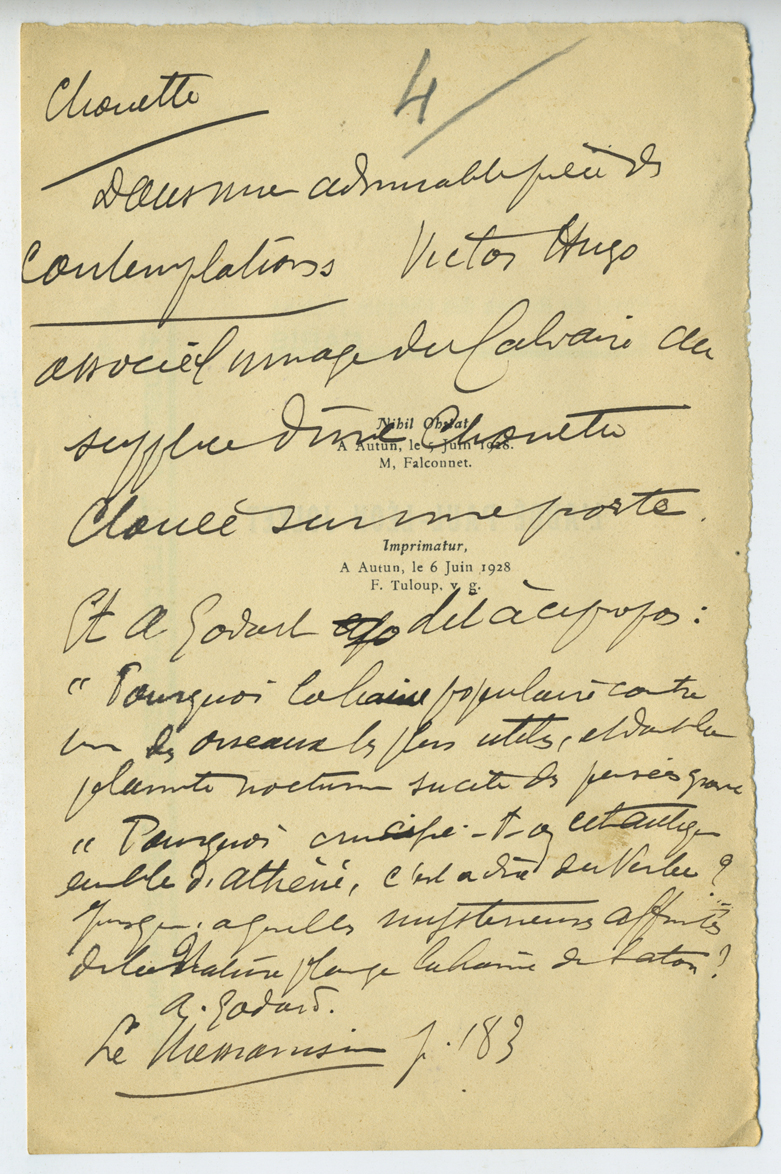 Chouette
4
Dans une admirable pièce des
Contemplations Victor Hugo
associe l'image du Calvaire au
Nihil Obstat
supplice d'une Chouette
A Autun, le 5 Juin 1928.
M, Falconnet.
Clouée sur une porte.
Imprimatur,
A Autun, le 6 Juin 1928
F. Tuloup. v. g.
Et A Godard dit à ce propos :
" Pourquoi la haine populaire contre
un des oiseaux les plus utiles, et dont la
plainte nocturne suscite des pensées graves
" Pourquoi crucifie-t-on cet antique
emblème d'Athéné, c'est à dire du Verbe ?
Jusqu'à quelles mystérieuses affinités
de la Nature plonge la haine de Satan ?
A. Godard.
Le Messianisme p. 183